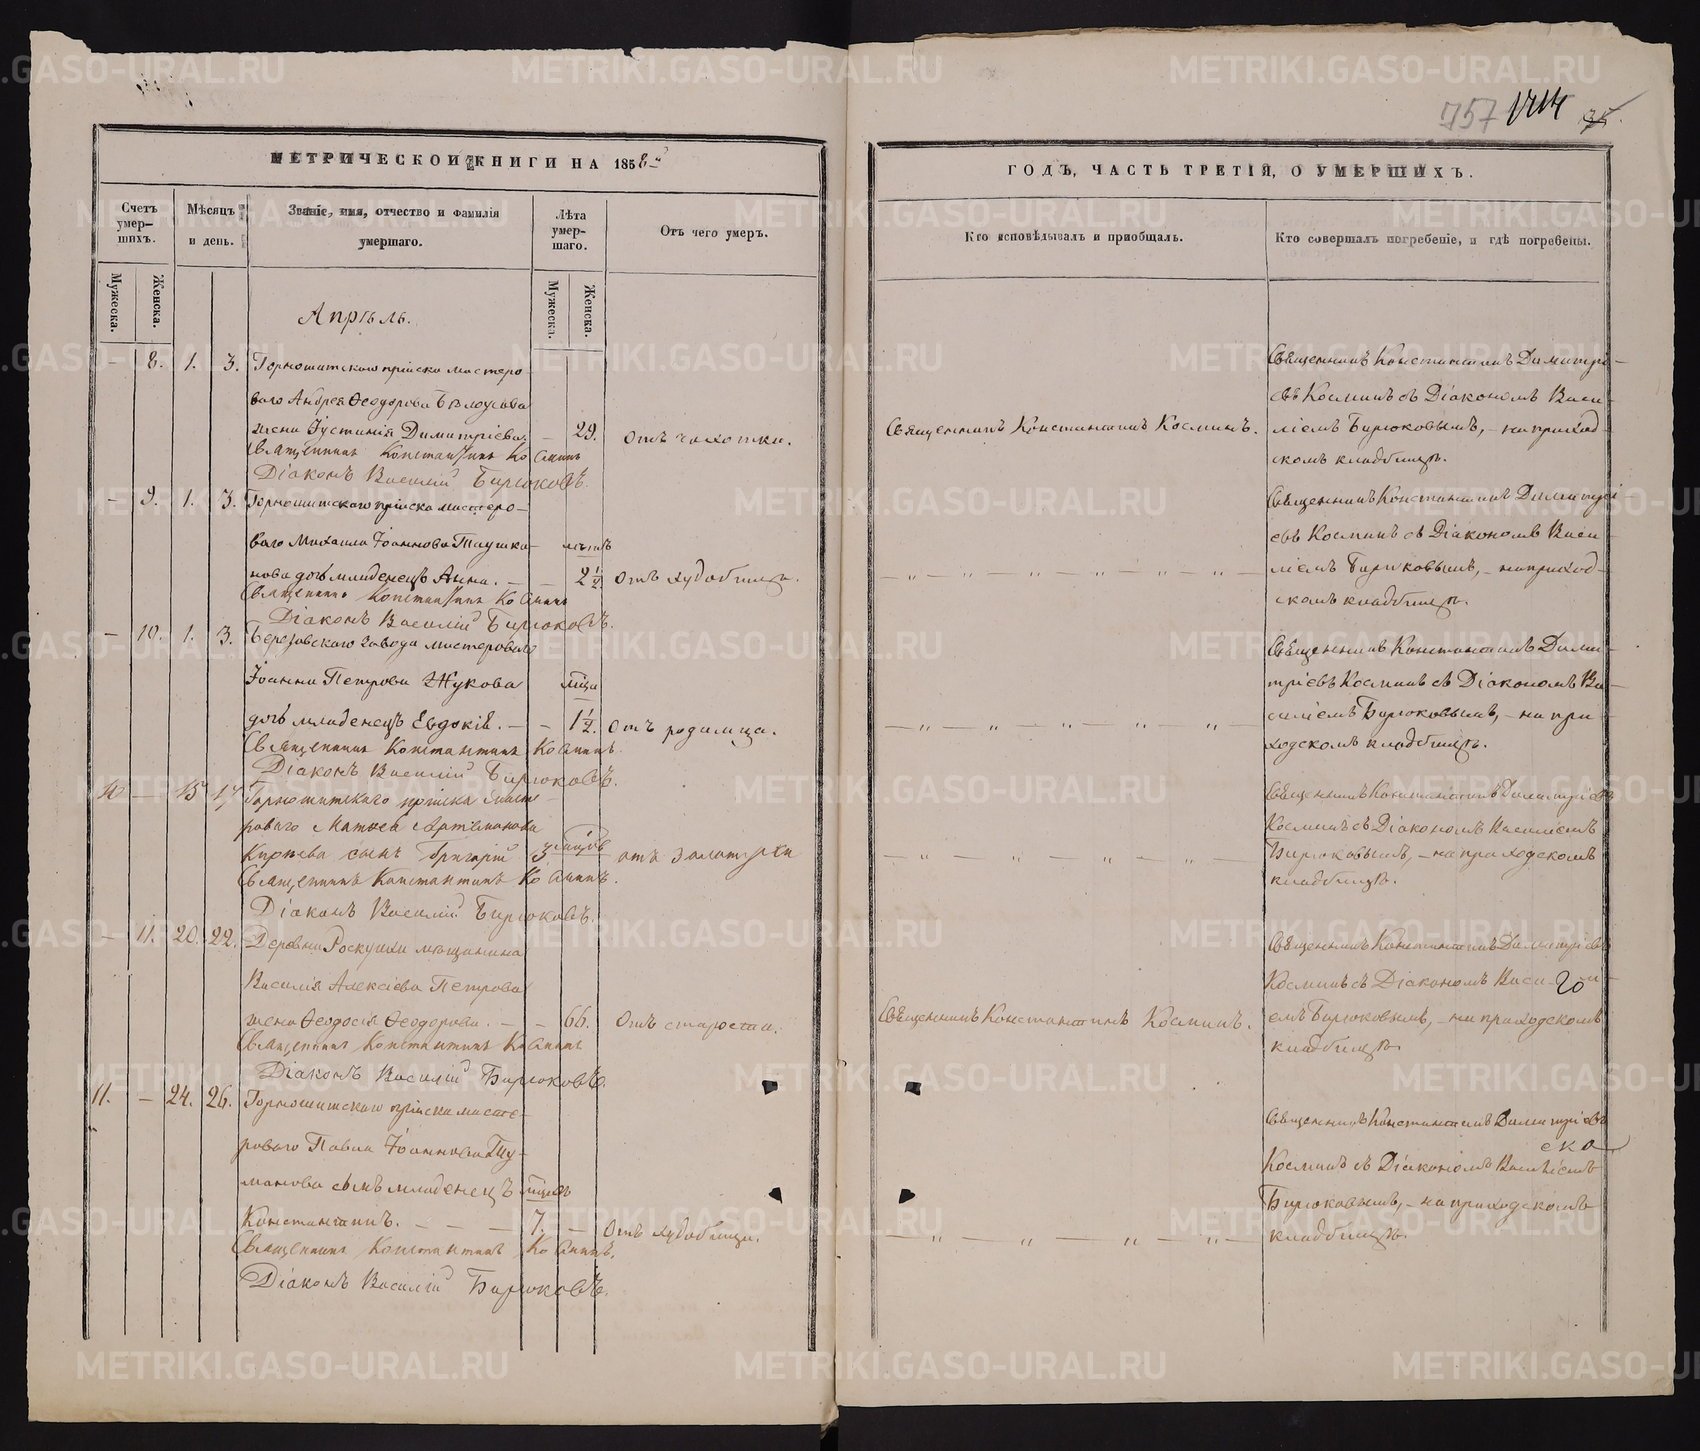 757 1414
МЕТРИЧЕСКОЙ КНИГИ НА 1858й
Счетъ умершихъ.
Мужеска.
Женска.
Мѣсяцъ и день.
Званіе, имя, отчество и фамилія умершаго.
Лѣта умершаго.
Мужеска.
Женска.
Отъ чего умеръ.
Апрѣль.
— 8. 1. 3. Горнощитскаго пріиска мастеро
ваго Андрея Ѳеодорова Бѣлоусова
жена Іустинія Димитріева. — 29. Отъ чахотки.
Священникъ Константинъ Косминъ
Діаконъ Василій Бирюковъ.
— 9. 1. 3. Горнощитскаго пріиска мастеро-
ваго Михаила Іоаннова Глушко-
нова дочь младенецъ Анна. — — 2½ Отъ худобища.
Священникъ Константинъ Косминъ
Діаконъ Василій Бирюковъ.
— 10. 1. 3. Березовскаго завода мастероваго
Іоанна Петрова Жукова
дочь младенецъ Евдокія. — — 1½. Отъ родимца.
Священникъ Константинъ Косминъ.
Діаконъ Василій Бирюковъ.
10 — 15 17 Горнощитскаго пріиска масте-
роваго Матвея Артамонова
сынъ Григорій 3
Священникъ Константинъ Косминъ.
Діаконъ Василій Бирюковъ.
— 11. 20. 22. Деревни мѣщанина
Василія Алексіева Петрова
жена Ѳеодосія Ѳеодорова. — — 66. Отъ старости.
Священникъ Константинъ Косминъ
Діаконъ Василій Бирюковъ.
11. — 24. 26. Горнощитскаго пріиска масте-
роваго Павла Іоаннова Ту-
манова сынъ младенецъ
Константинъ. — — — 7. — Отъ худобища.
Священникъ Константинъ Косминъ.
Діаконъ Василій Бирюковъ.
ГОДЪ, ЧАСТЬ ТРЕТІЯ, О УМЕРШИХЪ.
Кто исповѣдывалъ и приобщалъ.
Кто совершалъ погребеніе, и гдѣ погребены.
Священникъ Константинъ Димитрі-
евъ Косминъ съ Діакономъ Васи-
Священникъ Константинъ Косминъ. ліемъ Бирюковымъ, — на приход-
скомъ кладбищѣ.
Священникъ Константинъ Димитрі-
евъ Косминъ съ Діакономъ Васи-
— „ — „ — „ — „ — „ — ліемъ Бирюковымъ, — на приход-
скомъ кладбищѣ.
Священникъ Константинъ Дими-
тріевъ Косминъ съ Діакономъ Ва-
— „ — „ — „ — „ — „ — силіемъ Бирюковымъ, — на при-
ходскомъ кладбищѣ.
Священникъ Константинъ Димитріевъ
Косминъ съ Діакономъ Василіемъ
— „ — „ — „ — „ — Бирюковымъ, — на приходскомъ
кладбищѣ.
Священникъ Константинъ Димитріевъ
Косминъ съ Діакономъ Васи-
Священникъ Константинъ Косминъ. емъ Бирюковымъ, — на приходскомъ
кладбищѣ.
Священникъ Константинъ Димитріевъ
ска
Косминъ съ Діакономъ Василіемъ
Бирюковымъ, — на приходскомъ
— „ — „ — „ — „ — кладбищѣ.
METRIKI.GASO-URAL.RU